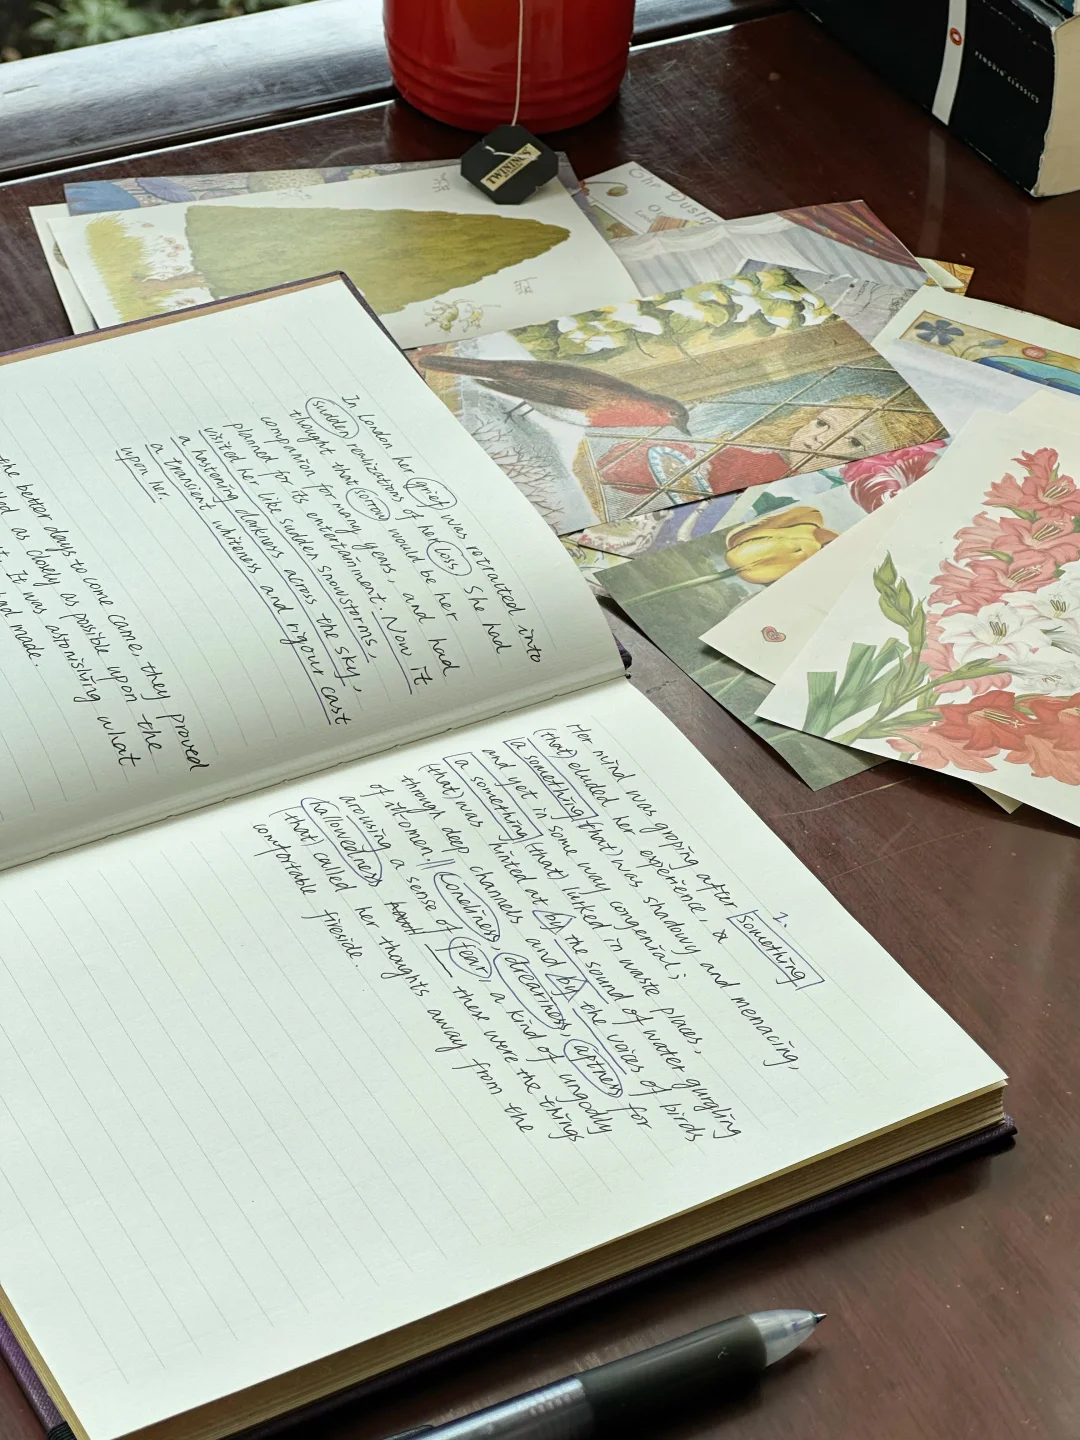 TWININGS
PENGUIN CLASSICS
The Dustm
In London her grief was retracted into
sudden realizations of her loss. She had
thought that sorrow would be her
companion for many years, and had
planned for its entertainment. Now it
visited her like sudden snowstorms,
a hastening darkness across the sky,
a transient whiteness and rigour cast
upon her.
the better days to come came, they proved
as closely as possible upon the
It was astonishing what
had made.
1.
Her mind was groping after something
(that) eluded her experience, a
a something (that) was shadowy and menacing,
and yet in some way congenial;
a something (that) lurked in waste places,
(that) was hinted at by the sound of water gurgling
through deep channels and by the voices of birds
of ill omen. // Loneliness, dreariness, aptness for
arousing a sense of fear, a kind of ungodly
hallowedness — these were the things
(that) called her thoughts away from the
comfortable fireside.